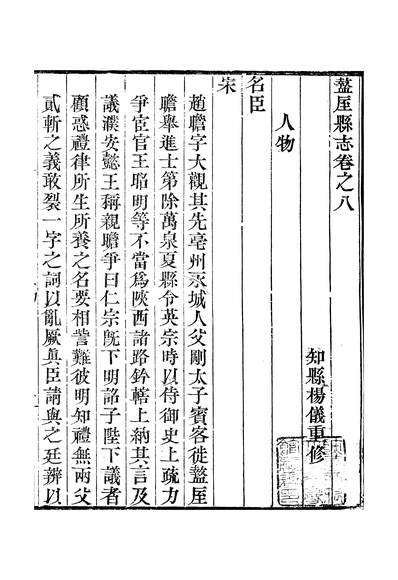 盩厔縣志卷之八
知縣楊儀重修
人物
名臣
宋
趙瞻字大觀其先亳州永城人父剛太子賓客徙盩厔
瞻舉進士第除萬泉夏縣令英宗時以侍御史上疏力
爭宦官王昭明等不當爲陝西諸路鈐轄上納其言及
議濮安懿王稱親瞻爭曰仁宗旣下明詔子陛下議者
顧惑禮律所生所養之名妄相訾難彼明知禮無兩父
貳斬之義敢裂一字之詞以亂厥眞臣請與之廷辨以